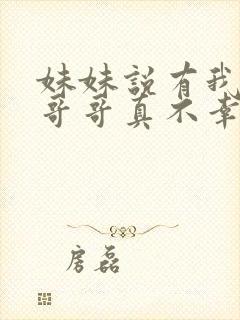 妹妹説有我
哥哥真不幸
房磊